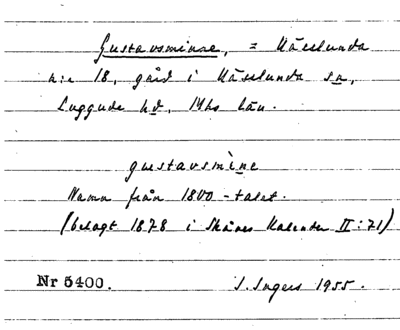 Gustavsminne, = Käeslunda
n:r 18, gård i Käselunda sn,
Luggude hd, Mhs län.
gustavsmìne
Namn från 1800-talet.
(belagt 1878 i Skånes Kalender II:71)
Nr 5400. I. Ingers 1955.